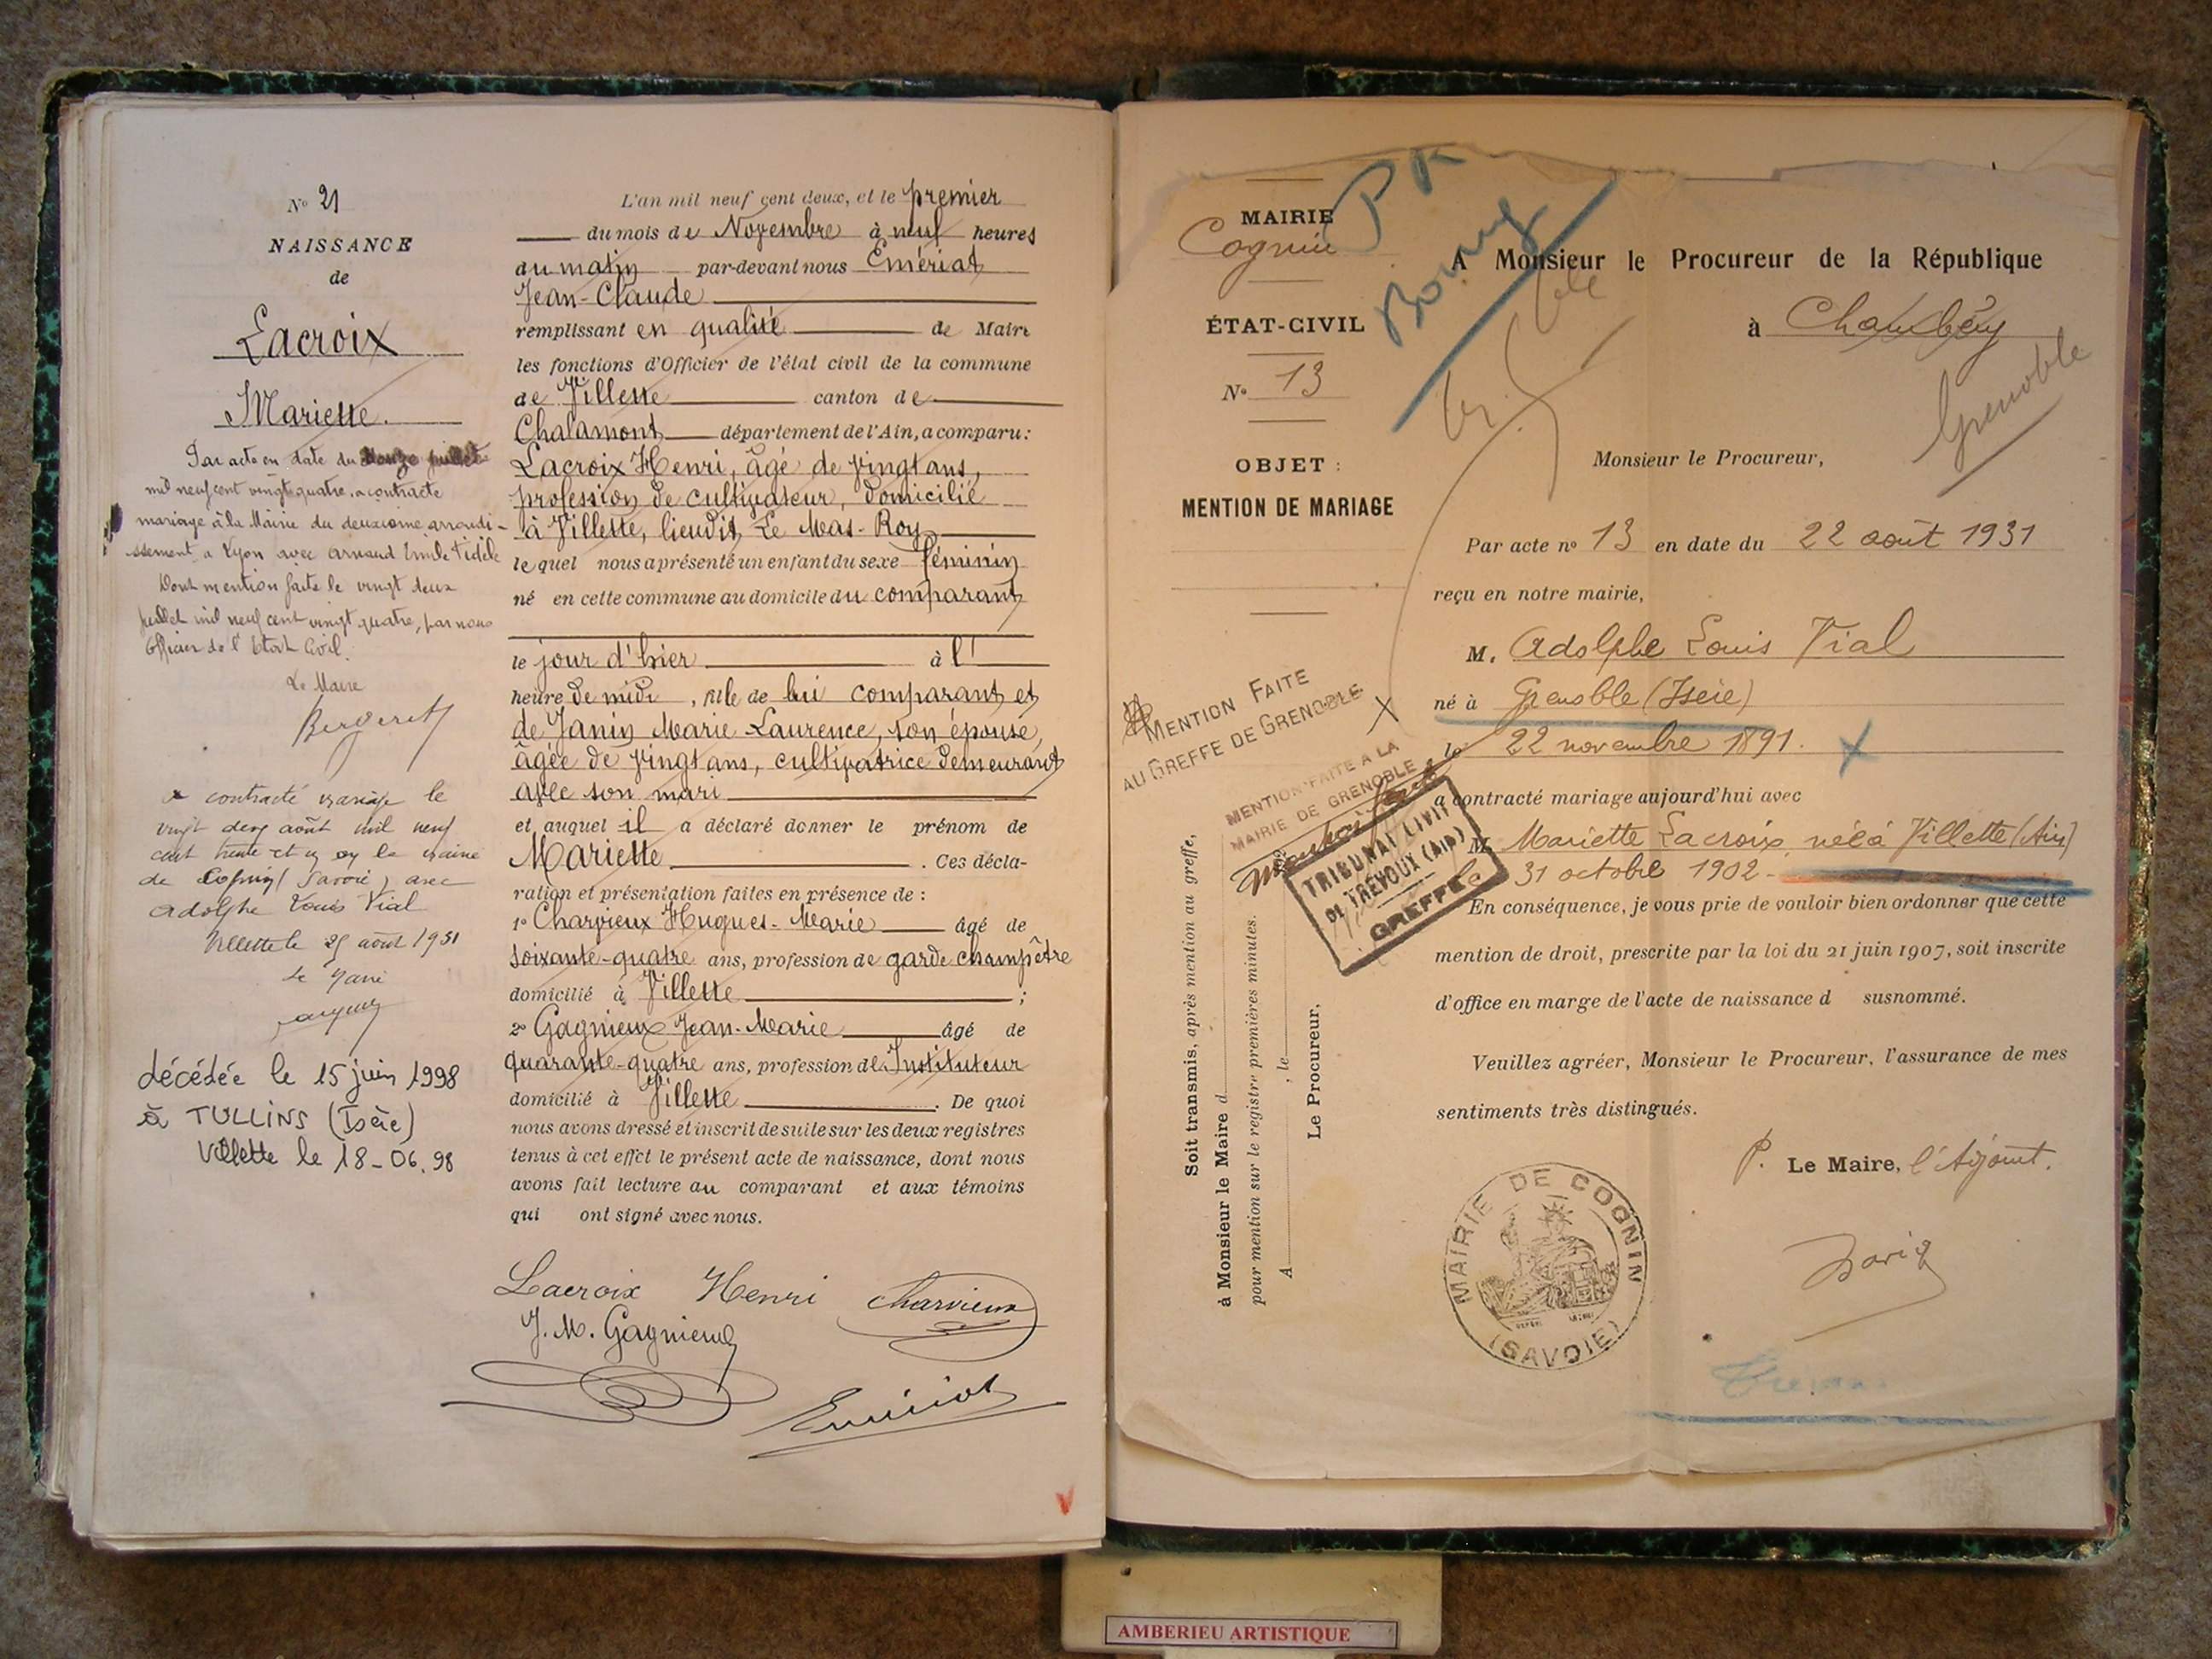 N° 21
NAISSANCE
de
Lacroix
Mariette.
Par acte en date du douze juillet
mil neuf cent vingt quatre, a contracté
mariage à la Mairie du deuxième arrondi-
ssement a Lyon avec Arnaud Emile Fidèle
Dont mention faite le vingt deux
juillet mil neuf cent vingt quatre, par nous
Officier de l'Etat Civil.
Le Maire
Bergeret
a contracté mariage le
vingt deux août mil neuf
cent trente et un en la mairie
de Cognin (Savoie) avec
Adolphe Louis Vial
Villette le 25 août 1931
Le Maire
décédée le 15 juin 1998
à TULLINS (Isère)
Villette le 18-06.98
L'an mil neuf cent deux, et le premier
du mois de Novembre à neuf heures
du matin par-devant nous Emériat
Jean-Claude
remplissant en qualité de Maire
les fonctions d'Officier de l'état civil de la commune
de Villette canton de
Chalamont département de l'Ain, a comparu :
Lacroix Henri, âgé de vingt ans,
profession de cultivateur, domicilié
à Villette, lieudit Le Mas-Roy
lequel nous a présenté un enfant du sexe féminin
né en cette commune au domicile du comparant
le jour d'hier à l'
heure de midi, fille de lui comparant et
de Janin Marie Laurence, son épouse,
âgée de vingt ans, cultivatrice demeurant
avec son mari
et auquel il a déclaré donner le prénom de
Mariette. Ces décla-
ration et présentation faites en présence de :
1° Charvieux Hugues-Marie âgé de
soixante-quatre ans, profession de garde champêtre
domicilié à Villette ;
2° Gagnieux Jean-Marie âgé de
quarante-quatre ans, profession d'Instituteur
domicilié à Villette. De quoi
nous avons dressé et inscrit de suite sur les deux registres
tenus à cet effet le présent acte de naissance, dont nous
avons fait lecture au comparant et aux témoins
qui ont signé avec nous.
Lacroix Henri Charvieux
J. M. Gagnieux
Emériat
V
MAIRIE
Cognin
ÉTAT-CIVIL
N° 13
OBJET :
MENTION DE MARIAGE
PR
Bourg
A Monsieur le Procureur de la République
à Chambéry
Grenoble
Monsieur le Procureur,
Par acte n° 13 en date du 22 août 1931
reçu en notre mairie,
M. Adolphe Louis Vial
né à Grenoble (Isère)
le 22 novembre 1891.
a contracté mariage aujourd'hui avec
M Mariette Lacroix, née à Villette (Ain)
le 31 octobre 1902.
En conséquence, je vous prie de vouloir bien ordonner que cette
mention de droit, prescrite par la loi du 21 juin 1907, soit inscrite
d'office en marge de l'acte de naissance d susnommé.
Veuillez agréer, Monsieur le Procureur, l'assurance de mes
sentiments très distingués.
P. Le Maire, l'Adjoint.
MENTION FAITE
AU GREFFE DE GRENOBLE
MENTION FAITE A LA
MAIRIE DE GRENOBLE
TRIBUNAL CIVIL
DE TRÉVOUX (AIN)
GREFFE
Soit transmis, après mention au greffe,
à Monsieur le Maire d
pour mention sur le registre premières minutes.
A , le
Le Procureur,
MAIRIE DE COGNIN
(SAVOIE)
AMBERIEU ARTISTIQUE